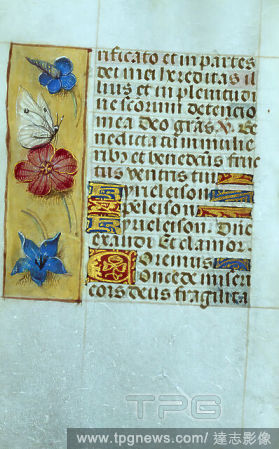 nificato et in partes
dei mei hereditas il
lius et in plenitudi
ne scorum detencio
mea deo gras. V. Be
nedicta tu in mulie
ribȝ et benedctus fruc
tus ventris tui
kyrieleison
xpeleison
kyrieleison. Dne
exaudi Et clamor.
Oremus
Concede miseri
cors deus fragilita
TPG
www.tpgnews.com/達志影像